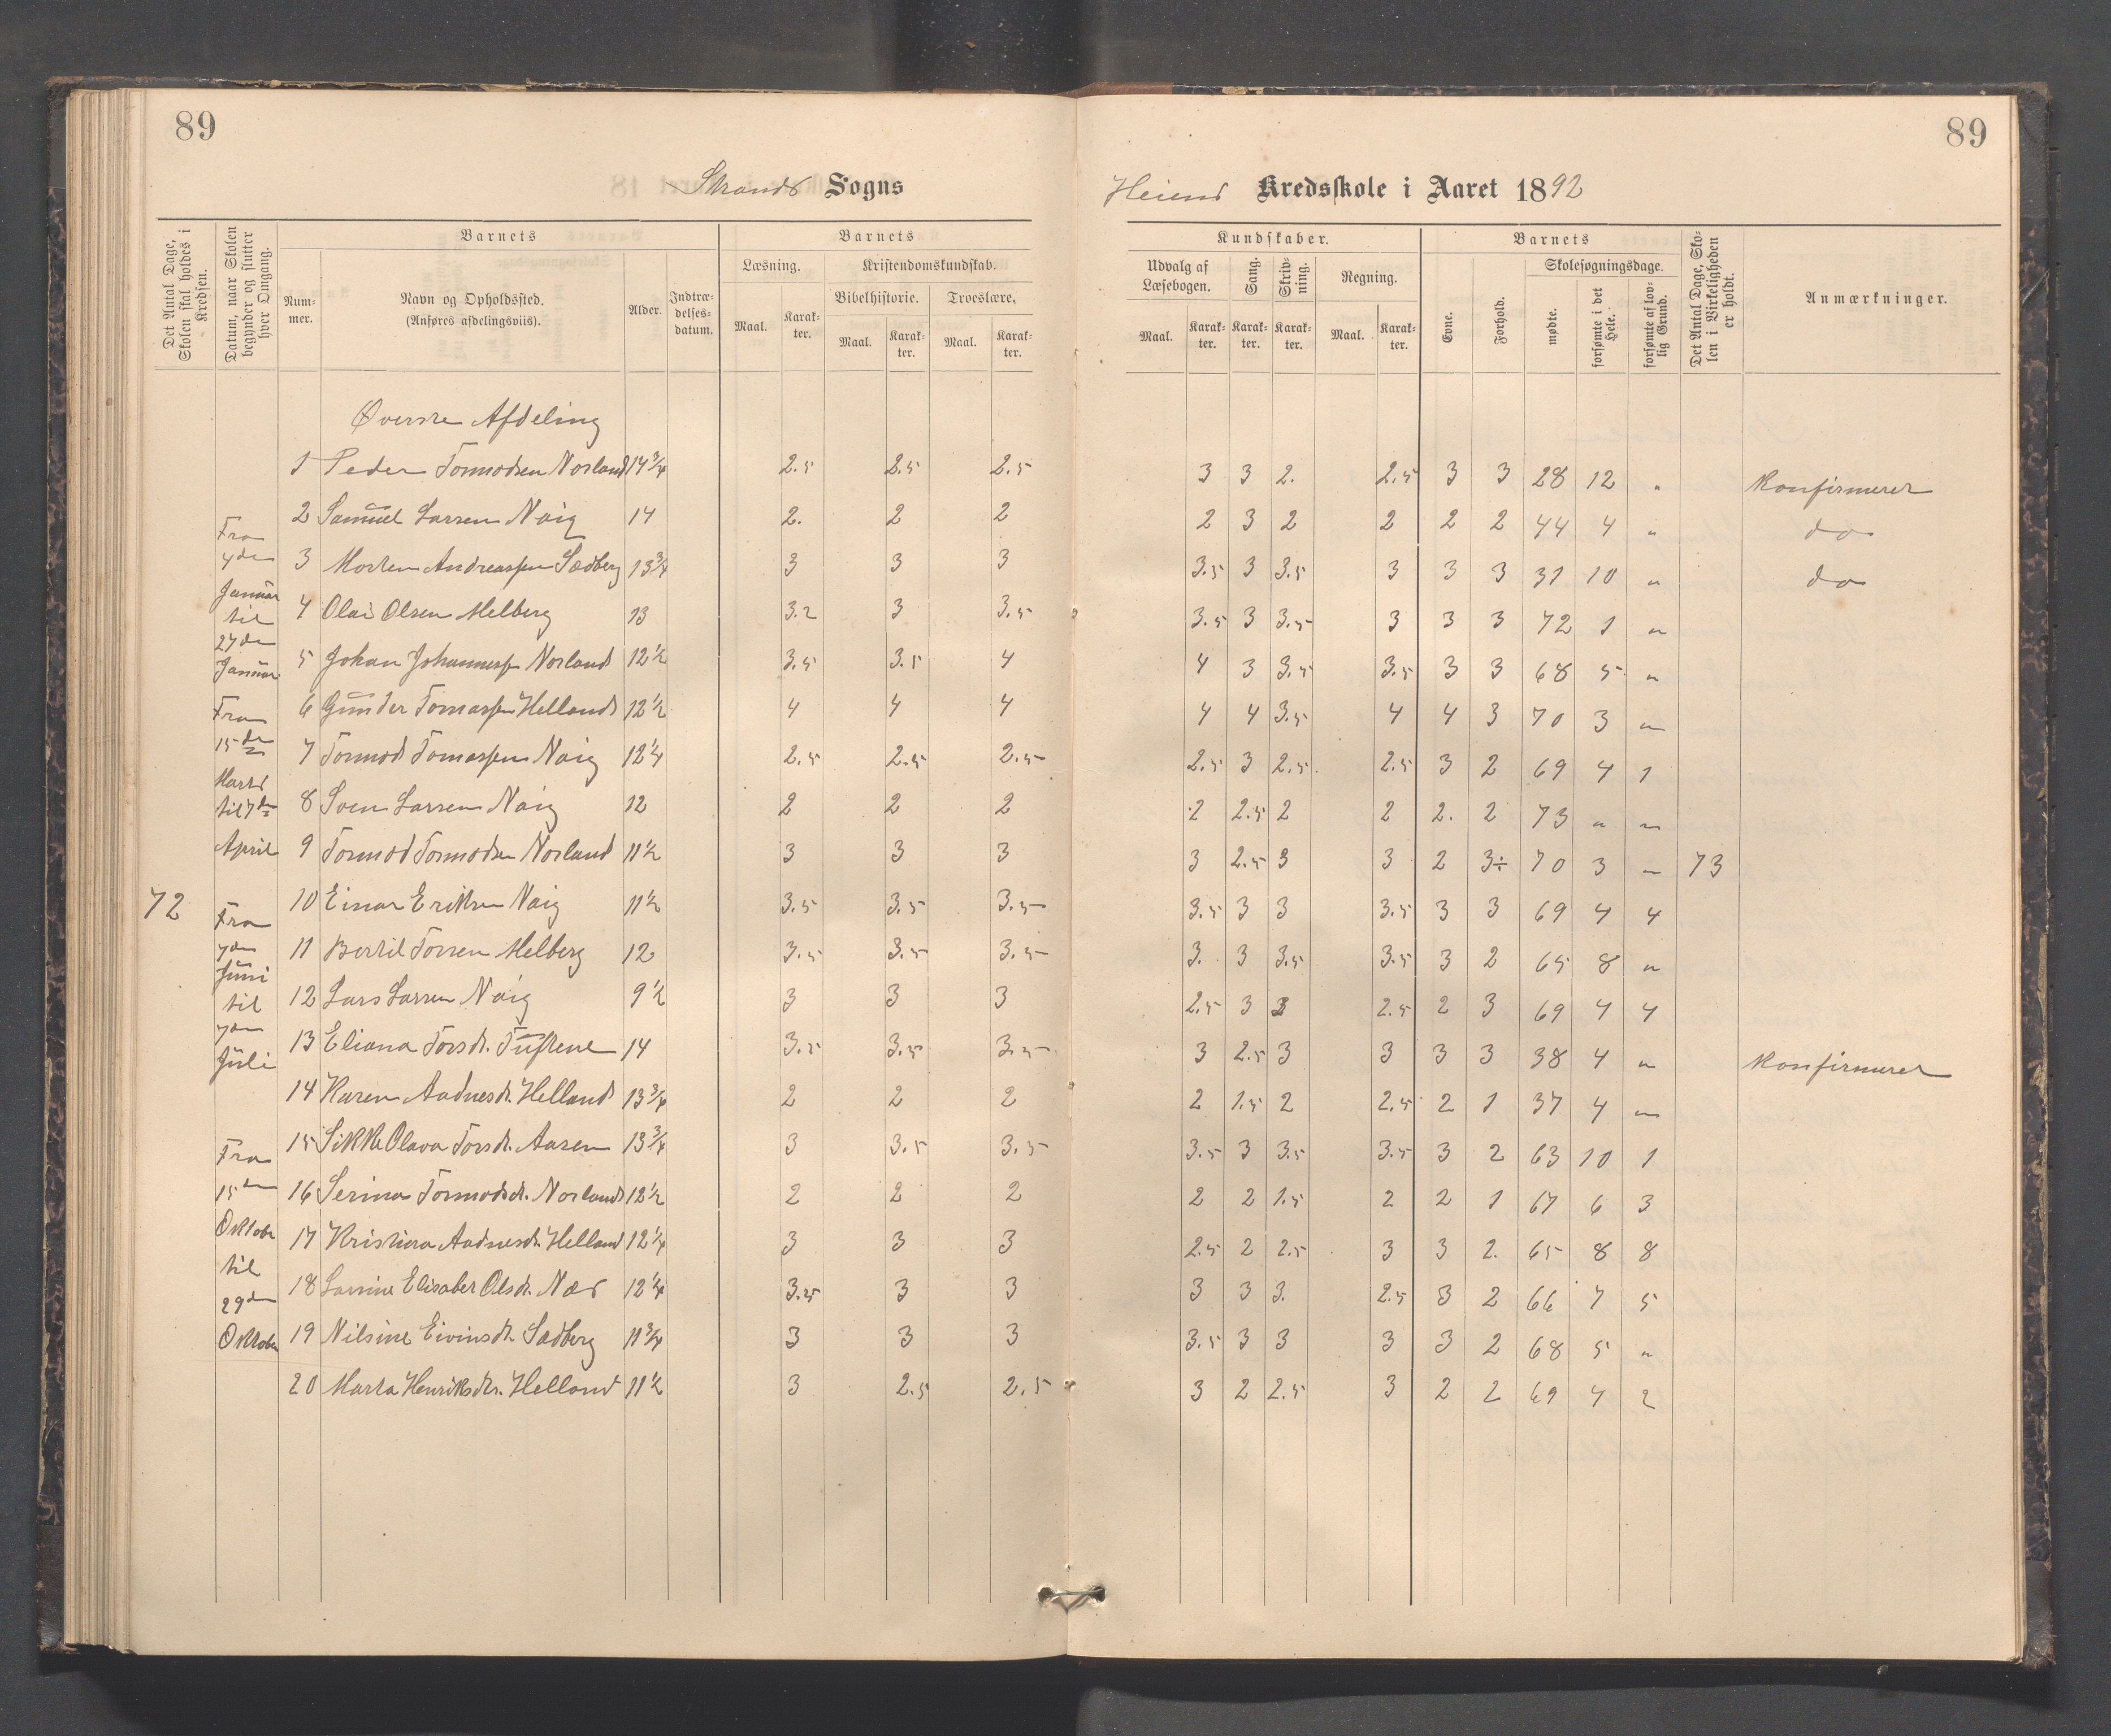 89
89
Strands Sogns
Heiens Kredsskole i Aaret 1892
Det Antal Dage, Skolen skal holdes i Kredsen.
Datum, naar Skolen begynder og slutter hver Omgang.
Barnets
Nummer.
Navn og Opholdssted.
(Anføres afdelingsviis).
Alder.
Indtrædelses-datum.
Barnets
Læsning.
Kristendomskundskab.
Bibelhistorie.
Troeslære.
Maal. Karakter. Maal. Karakter. Maal. Karakter.
Kundskaber.
Udvalg af Læsebogen.
Sang.
Skrivning.
Regning.
Maal. Karakter. Karakter. Karakter. Maal. Karakter.
Barnets
Evne.
Forhold.
Skolesøgningsdage.
mødte.
forsømte i det Hele.
forsømte af lovlig Grund.
Det Antal Dage, Skolen i Virkeligheden er holdt.
Anmærkninger.
Øverste Afdeling
1 Peder Tormodsen Norland 14 3/4 2.5 2.5 2.5 3 3 2. 2.5 3 3 28 12 " Konfirmeret
2 Samuel Larsen Naig 14 2. 2 2 2 3 2 2 2 2 44 4 " do
3 Morten Andreassen Sedberg 13 3/4 3 3 3 3.5 3 3.5 3 3 3 31 10 " do
4 Olai Olsen Melberg 13 3.2 3 3.5 3.5 3 3.5 3 3 3 72 1 "
5 Johan Johannessen Norland 12 1/2 3.5 3.5 4 4 3 3.5 3.5 3 3 68 5 "
6 Gunder Tomassen Helland 12 1/2 4 4 4 4 4 3.5 4 4 3 70 3 "
7 Tormod Tomassen Naig 12 1/4 2.5 2.5 2.5 2.5 3 2.5 2.5 3 2 69 4 1
8 Sven Larsen Naig 12 2 2 2 2 2.5 2 2 2. 2 73 " "
9 Tormod Tormodsen Norland 11 1/2 3 3 3 3 2.5 3 3 2 3÷ 70 3 " 73
10 Einar Eriksen Naig 11 1/2 3.5 3.5 3.5 3.5 3 3 3.5 3 3 69 4 4
11 Bertil Torsen Melberg 12 3.5 3.5 3.5 3. 3 3.5 3.5 3 2 65 8 "
12 Lars Larsen Naig 9 1/2 3 3 3 2.5 3 3 2.5 2 3 69 4 4
13 Eliana Torsdt. Tuftene 14 3.5 3.5 3.5 3 2.5 3 3 3 3 38 4 " Konfirmeret
14 Karen Aadnesdt. Helland 13 3/4 2 2 2 2 1.5 2 2.5 2 1 37 4 "
15 Sikke Olava Torsdt. Aasen 13 3/4 3 3.5 3.5 3.5 3 3.5 3.5 3 2 63 10 1
16 Serina Tormodsdt. Norland 12 1/2 2 2 2 2 2 1.5 2 2 1 67 6 3
17 Kristina Aadnesdt. Helland 12 1/4 3 3 3 2.5 2 2.5 3 3 2. 65 8 8
18 Larsine Elisabet Olsdt. Nær 12 1/4 3.25 3 3 3 3 3. 2.5 3 2 66 7 5
19 Nilsine Eivinsdt. Sedberg 11 3/4 3 3 3 3.5 3 3 3 3 2 68 5 "
20 Marta Henriksdtr. Helland 11 1/2 3 2.5 2.5 3 2 2.5 3 2 2 69 4 2
72
Fra
4de
Januar
til
27de
Januar
Fra
15de
Marts
til 7de
April
Fra
7de
Juni
til
7de
Juli
Fra
15de
Oktober
til
29de
Oktober